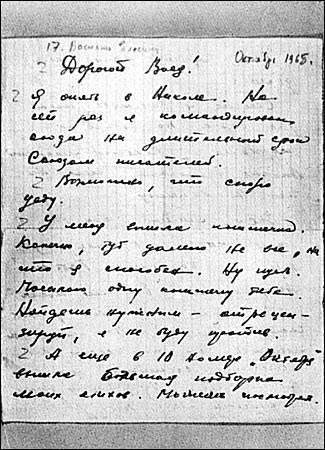 17. Василию Елесину
Октябрь 1965.
2 Дорогой Вася!
2 Я опять в Николе. На
сей раз я командирован
сюда на длительный срок
Союзом писателей.
2 Возможно, что скоро
уеду.
2 У меня вышла книжечка.
Конечно, тут далеко не все, на
что я способен. Ну пусть.
Посылаю одну книжечку тебе.
Найдешь нужным — отрецен-
зируй, я не буду против.
2 А еще в 10 номере „Октября"
вышла большая подборка
моих стихов. Можешь посмотреть.